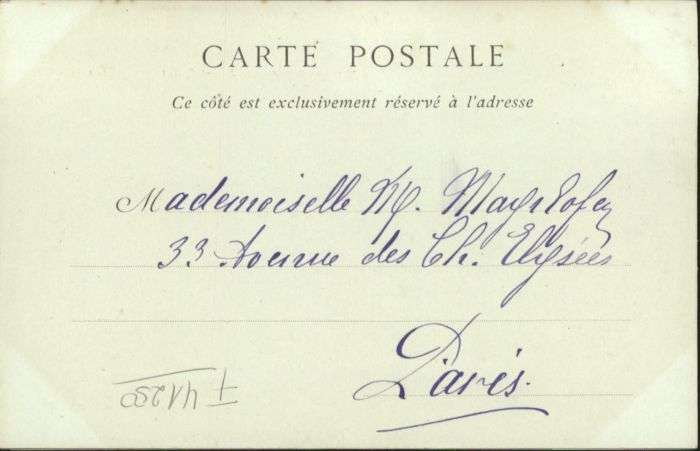 CARTE POSTALE
Ce côté est exclusivement réservé à l'adresse
Mademoiselle M. Mayrhofer
33 Avenue des Ch. Elysées
Paris.